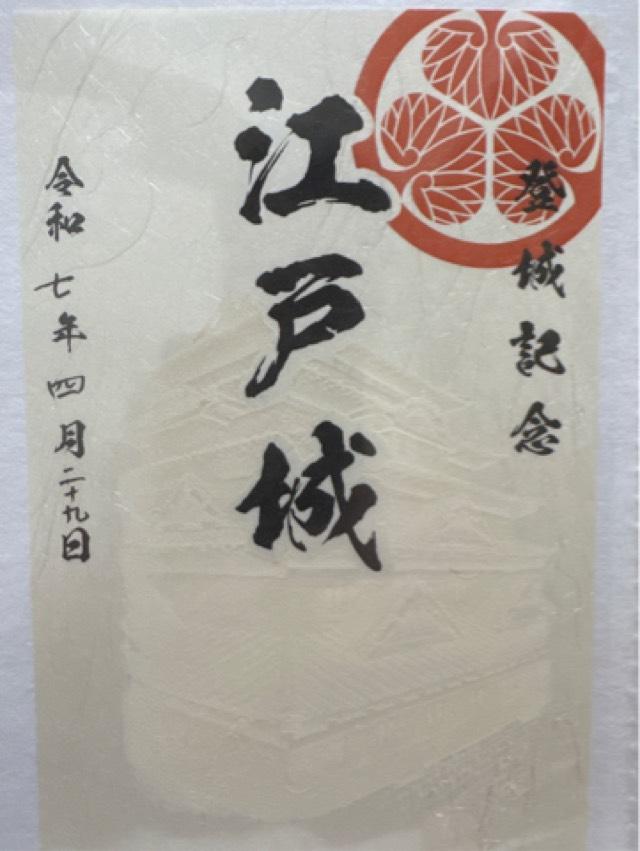 登城記念
江戸城
令和七年四月二十九日